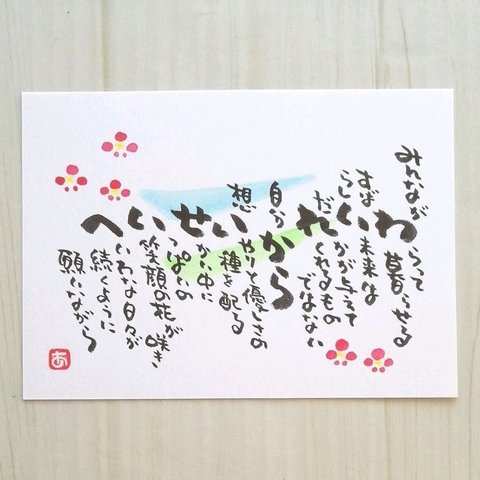 みんなが
わらって
暮らせる
すばらしい
未来は
だれかが与えて
くれるもの
ではない
自分から
想いやりと優しさの
種を配る
せかい中に
いっぱいの
笑顔の花が咲き
へいわな日々が
続くように
願いながら
あ